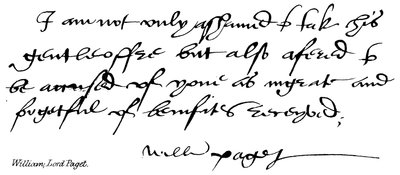 I am not only asshamed to take this
gentle offre but also afered to
be accused of youe as ingrate and
forgetful of benifates receyvid;
Willm Paget
William, Lord Paget.